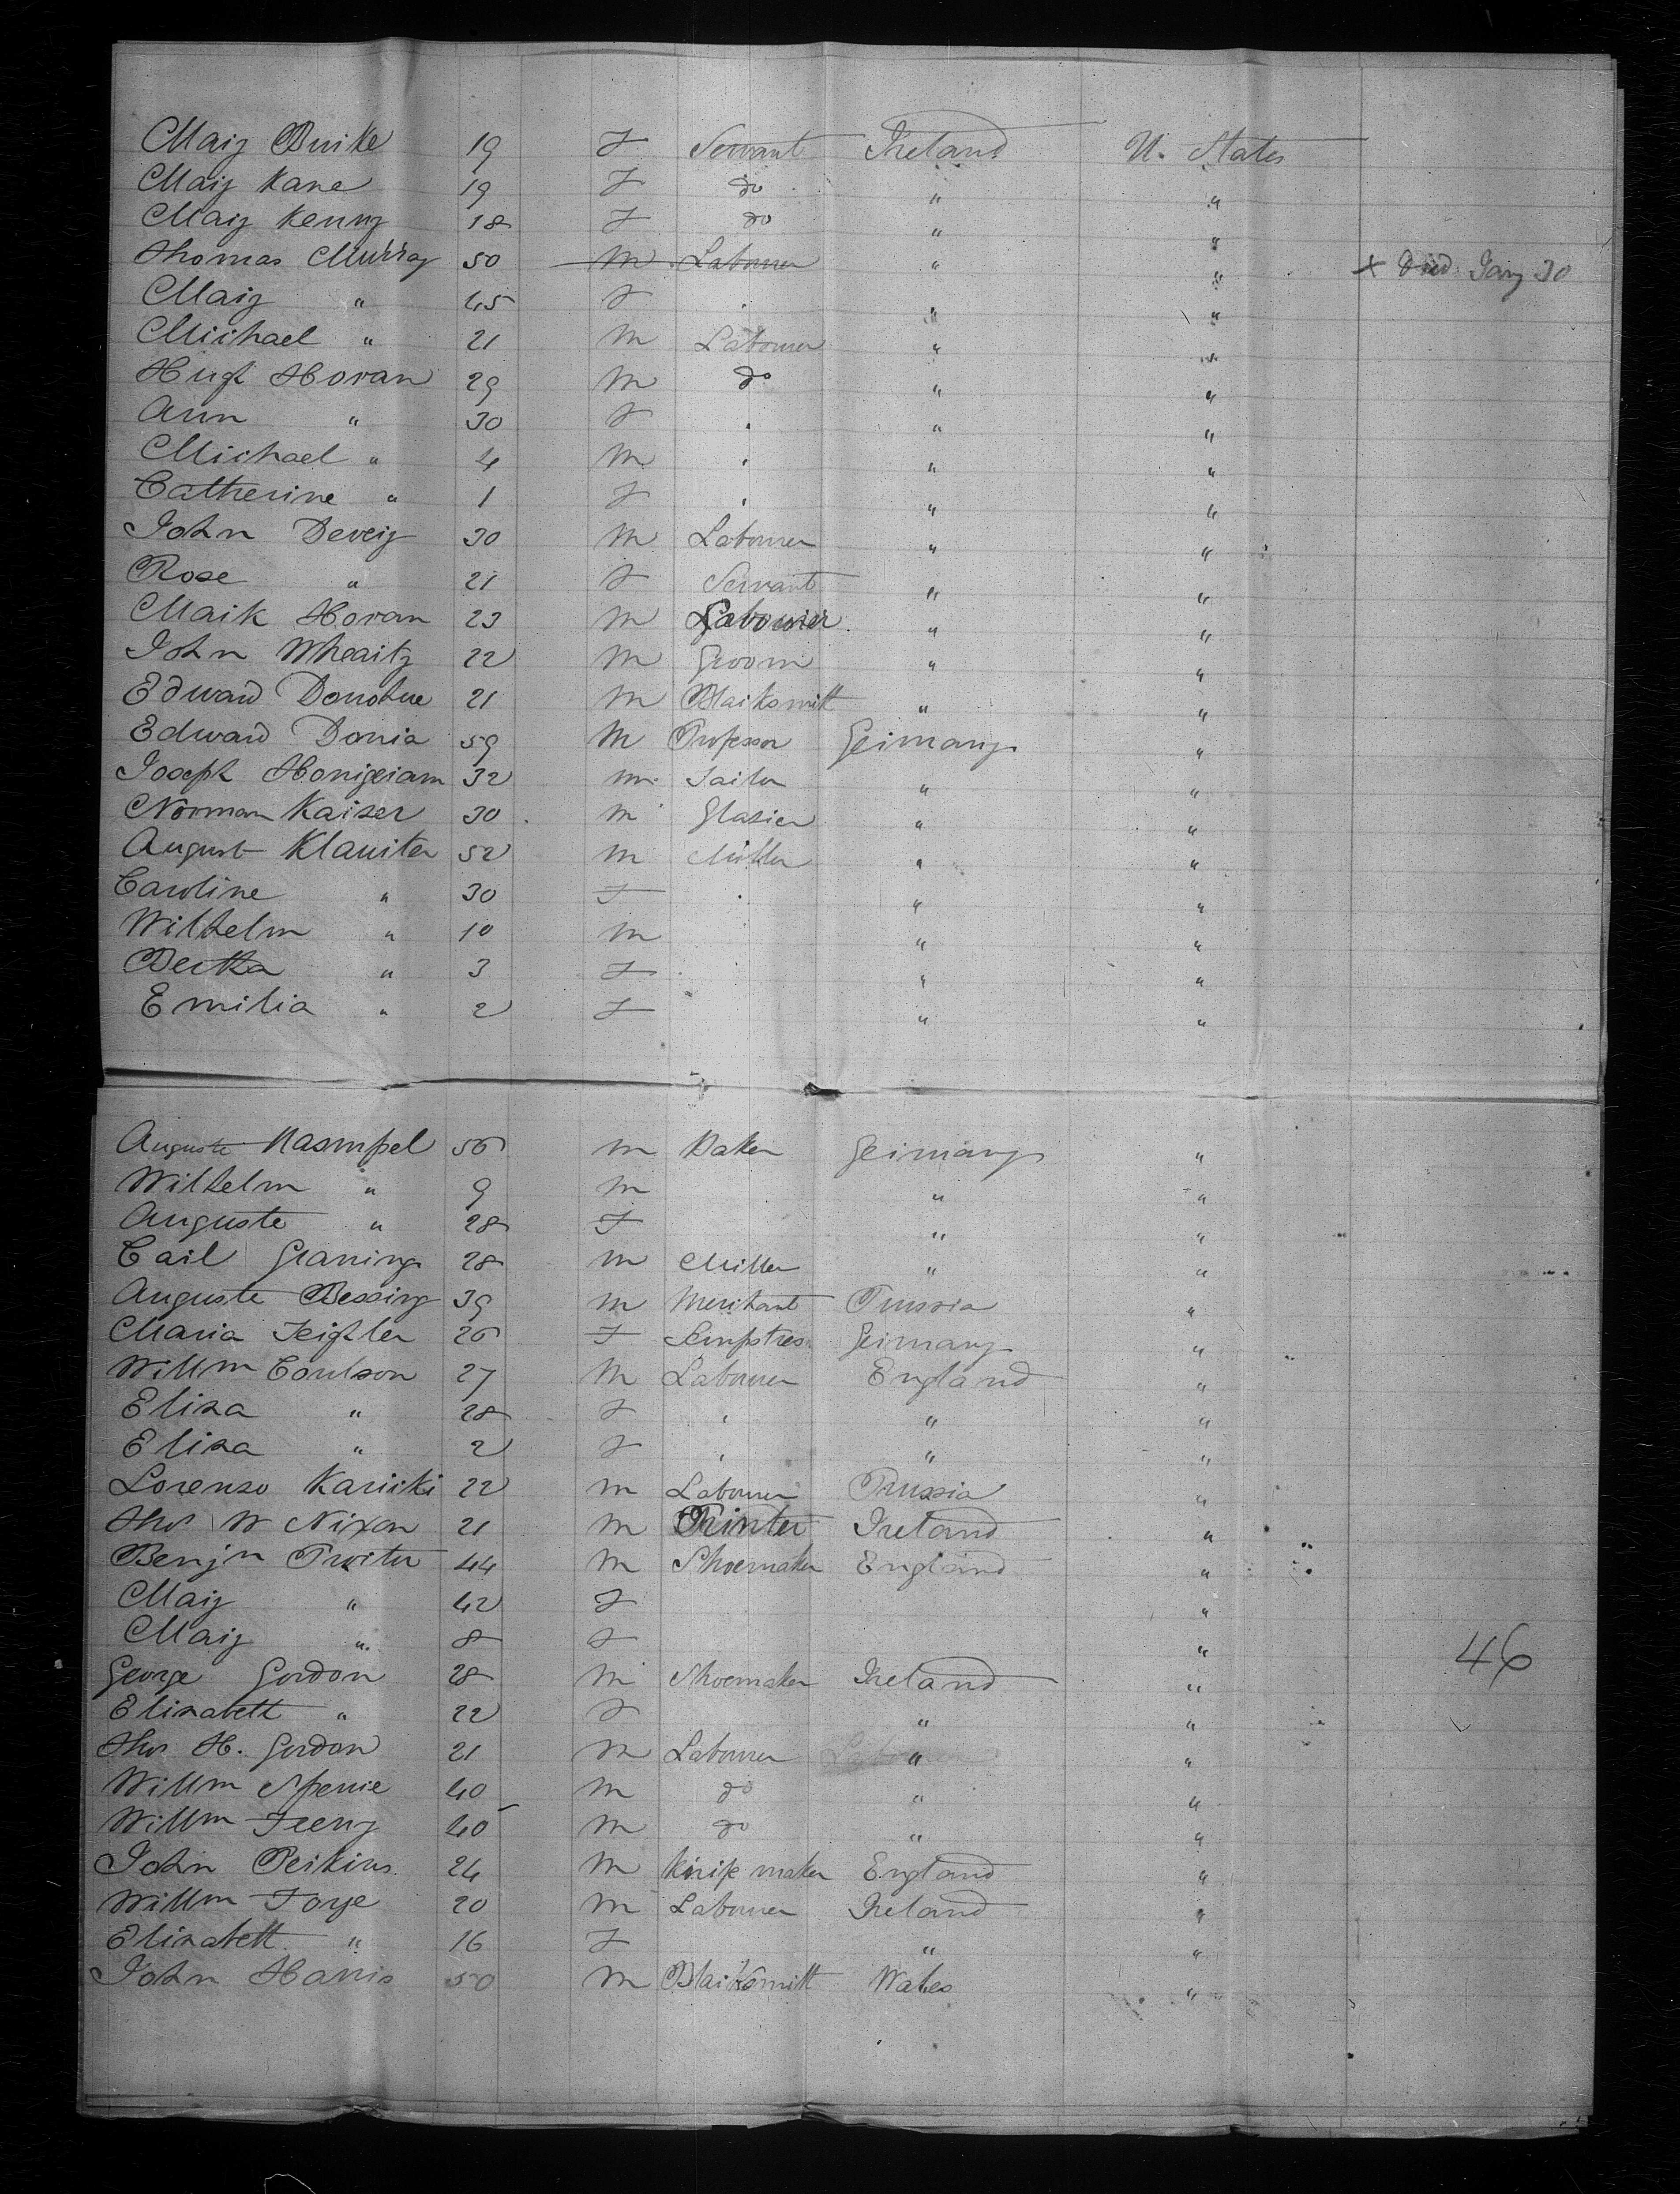 Mary Burke 19 F Servant Ireland U. States
Mary Kane 19 F do " "
Mary Kenny 18 F do " "
Thomas Murray 50 M Labourer " " + Died Jany 30
Mary " 45 F " " "
Michael " 21 M Labourer " "
Hugh Horan 29 M do " "
Ann " 30 F " " "
Michael " 4 M " " "
Catherine " 1 F " " "
John Devery 30 M Labourer " "
Rose " 21 F Servant " "
Mark Horan 23 M Labourer " "
John Whearty 22 M Groom " "
Edward Donohue 21 M Blacksmith " "
Edward Doria 59 M Professor Germany "
Joseph 32 m Tailor " "
Norman Kaiser 30 m Glazier " "
August Klauiter 52 m Miller " "
Caroline " 30 F " " "
Wilhelm " 10 m " "
Bertha " 3 F " "
Emilia " 2 F " "
Auguste Hasmpel 56 m Baker Germany "
Wilhelm " 9 m " "
Auguste " 28 F " "
Carl Graning 28 m Miller " "
Auguste Bessing 39 m Merchant Prussia "
Maria Teighler 26 F Sempstress Germany "
Willm Coulson 27 M Labourer England "
Eliza " 28 F " " "
Eliza " 2 F " " "
Lorenzo Kariiki 22 m Labourer Prussia "
Thos W Nixon 21 M Printer Ireland "
Benjn 44 M Shoemaker England "
Mary " 42 F "
Mary " 8 F " 46
George Gordon 28 M Shoemaker Ireland "
Elizabeth " 22 F " "
Thos H. Gordon 21 M Labourer " "
Willm Spence 40 M do " "
Willm Feeny 40 M do " "
John Perkins 24 M Knife maker England "
Willm Foye 20 M Labourer Ireland "
Elizabeth " 16 F " "
John Harris 50 M Blacksmith Wales "